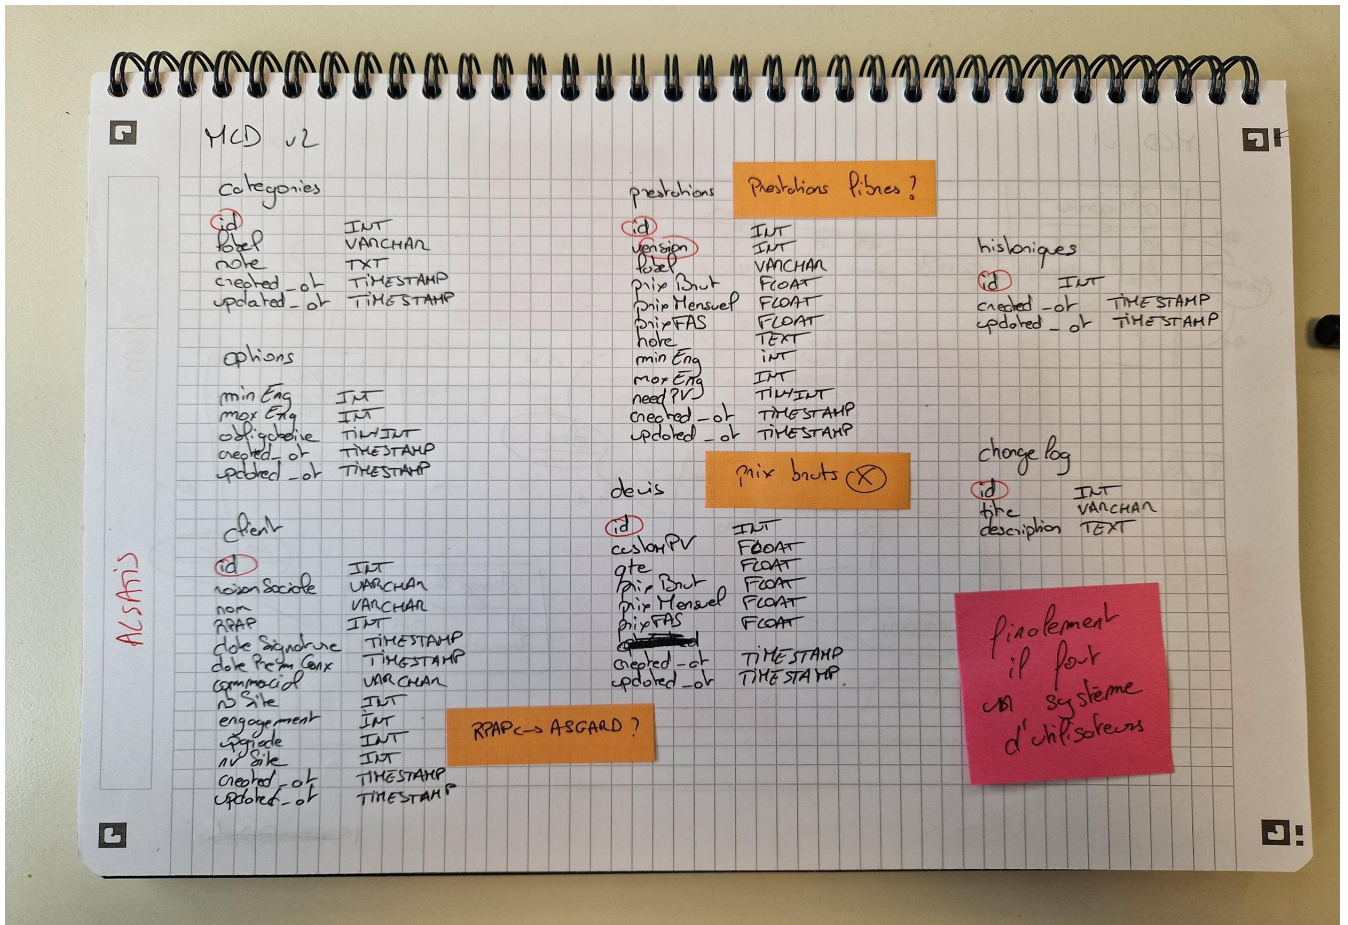 MCD v2
categories
id INT
label VARCHAR
note TXT
created_at TIMESTAMP
updated_at TIMESTAMP
options
minEng INT
maxEng INT
obligatoire TINYINT
created_at TIMESTAMP
updated_at TIMESTAMP
client
id INT
raisonSociale VARCHAR
nom VARCHAR
RPAP INT
date Signature TIMESTAMP
date Presm Conx TIMESTAMP
commercial VARCHAR
nb Site INT
engagement INT
upgrade INT
nv Site INT
created_at TIMESTAMP
updated_at TIMESTAMP
RPAP <-> ASGARD ?
prestations
Prestations libres ?
id INT
version INT
label VARCHAR
prix Brut FLOAT
prix Mensuel FLOAT
prix FAS FLOAT
note TEXT
min Eng INT
max Eng INT
needPV TINYINT
created_at TIMESTAMP
updated_at TIMESTAMP
devis
prix bruts X
id INT
customPV FLOAT
qte FLOAT
prix Brut FLOAT
prix Mensuel FLOAT
prix FAS FLOAT
created_at TIMESTAMP
updated_at TIMESTAMP
historiques
id INT
created_at TIMESTAMP
updated_at TIMESTAMP
change log
id INT
titre VARCHAR
description TEXT
finalement
il faut
un système
d'utilisateurs